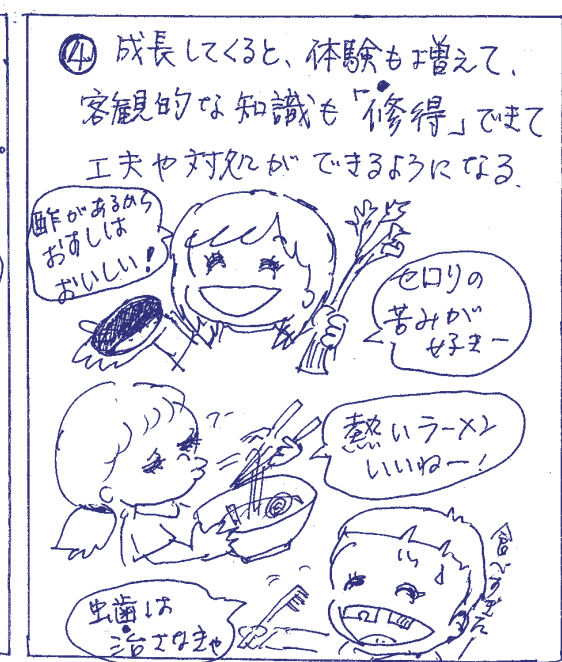 ④ 成長してくると、体験も増えて、
客観的な知識も「修得」できて
工夫や対処ができるようになる。
酢があるから
おすしは
おいしい!
セロリの
苦みが
好きー
熱いラーメン
いいねー!
食べすぎたー
虫歯は
治さなきゃ